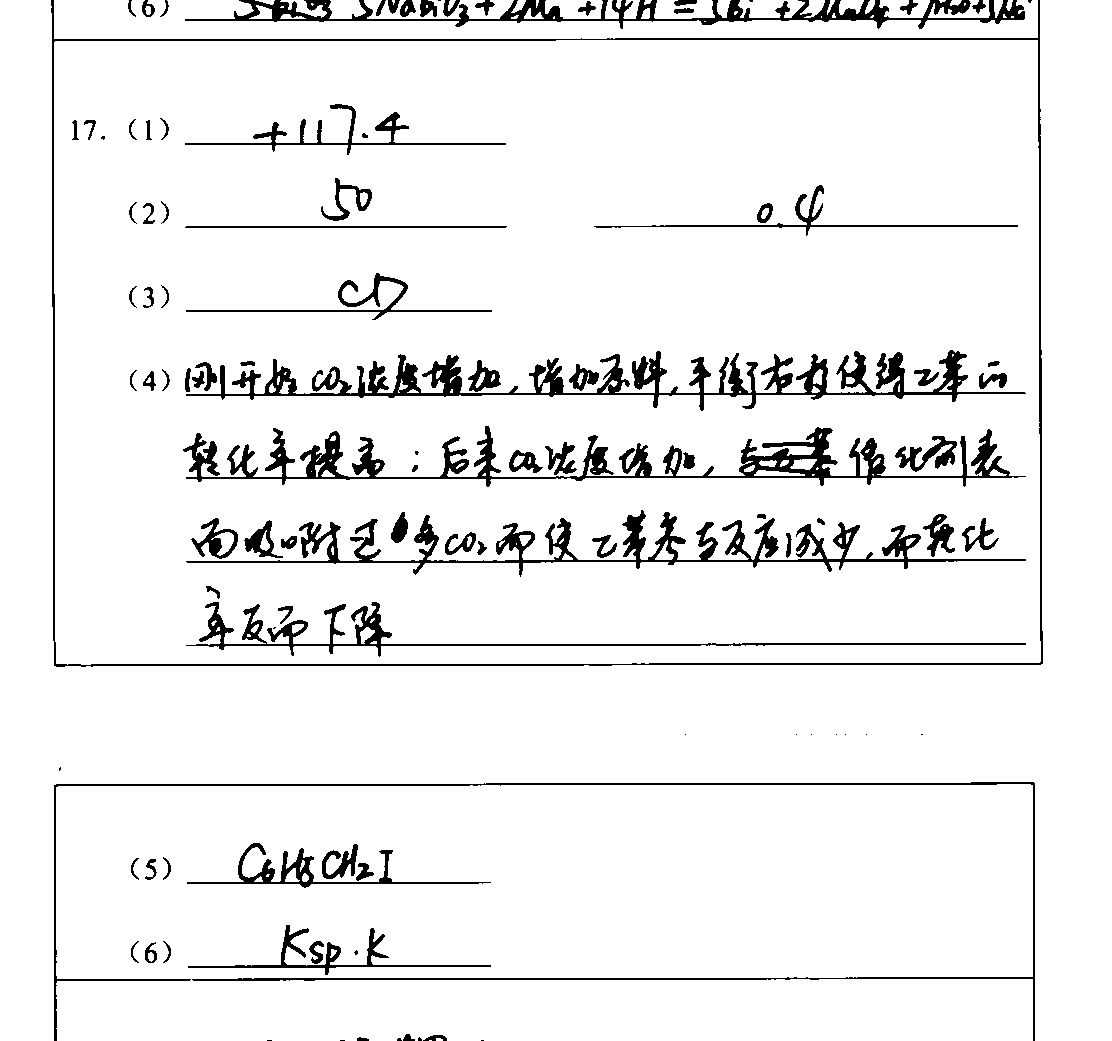 (6) 5NaBiO₃+2Mn +14H = 5Bi +2MnO₄ + 7H₂O+5Na
17. (1) +117.4
(2) 50 0.4
(3) CD
(4) 刚开始CO₂浓度增加,增加原料,平衡右移使得乙苯的
转化率提高;后来CO₂浓度增加,催化剂表
面吸附过多CO₂而使乙苯参与反应减少,而转化
率反而下降
(5) C₆H₅CH₂I
(6) Ksp·K